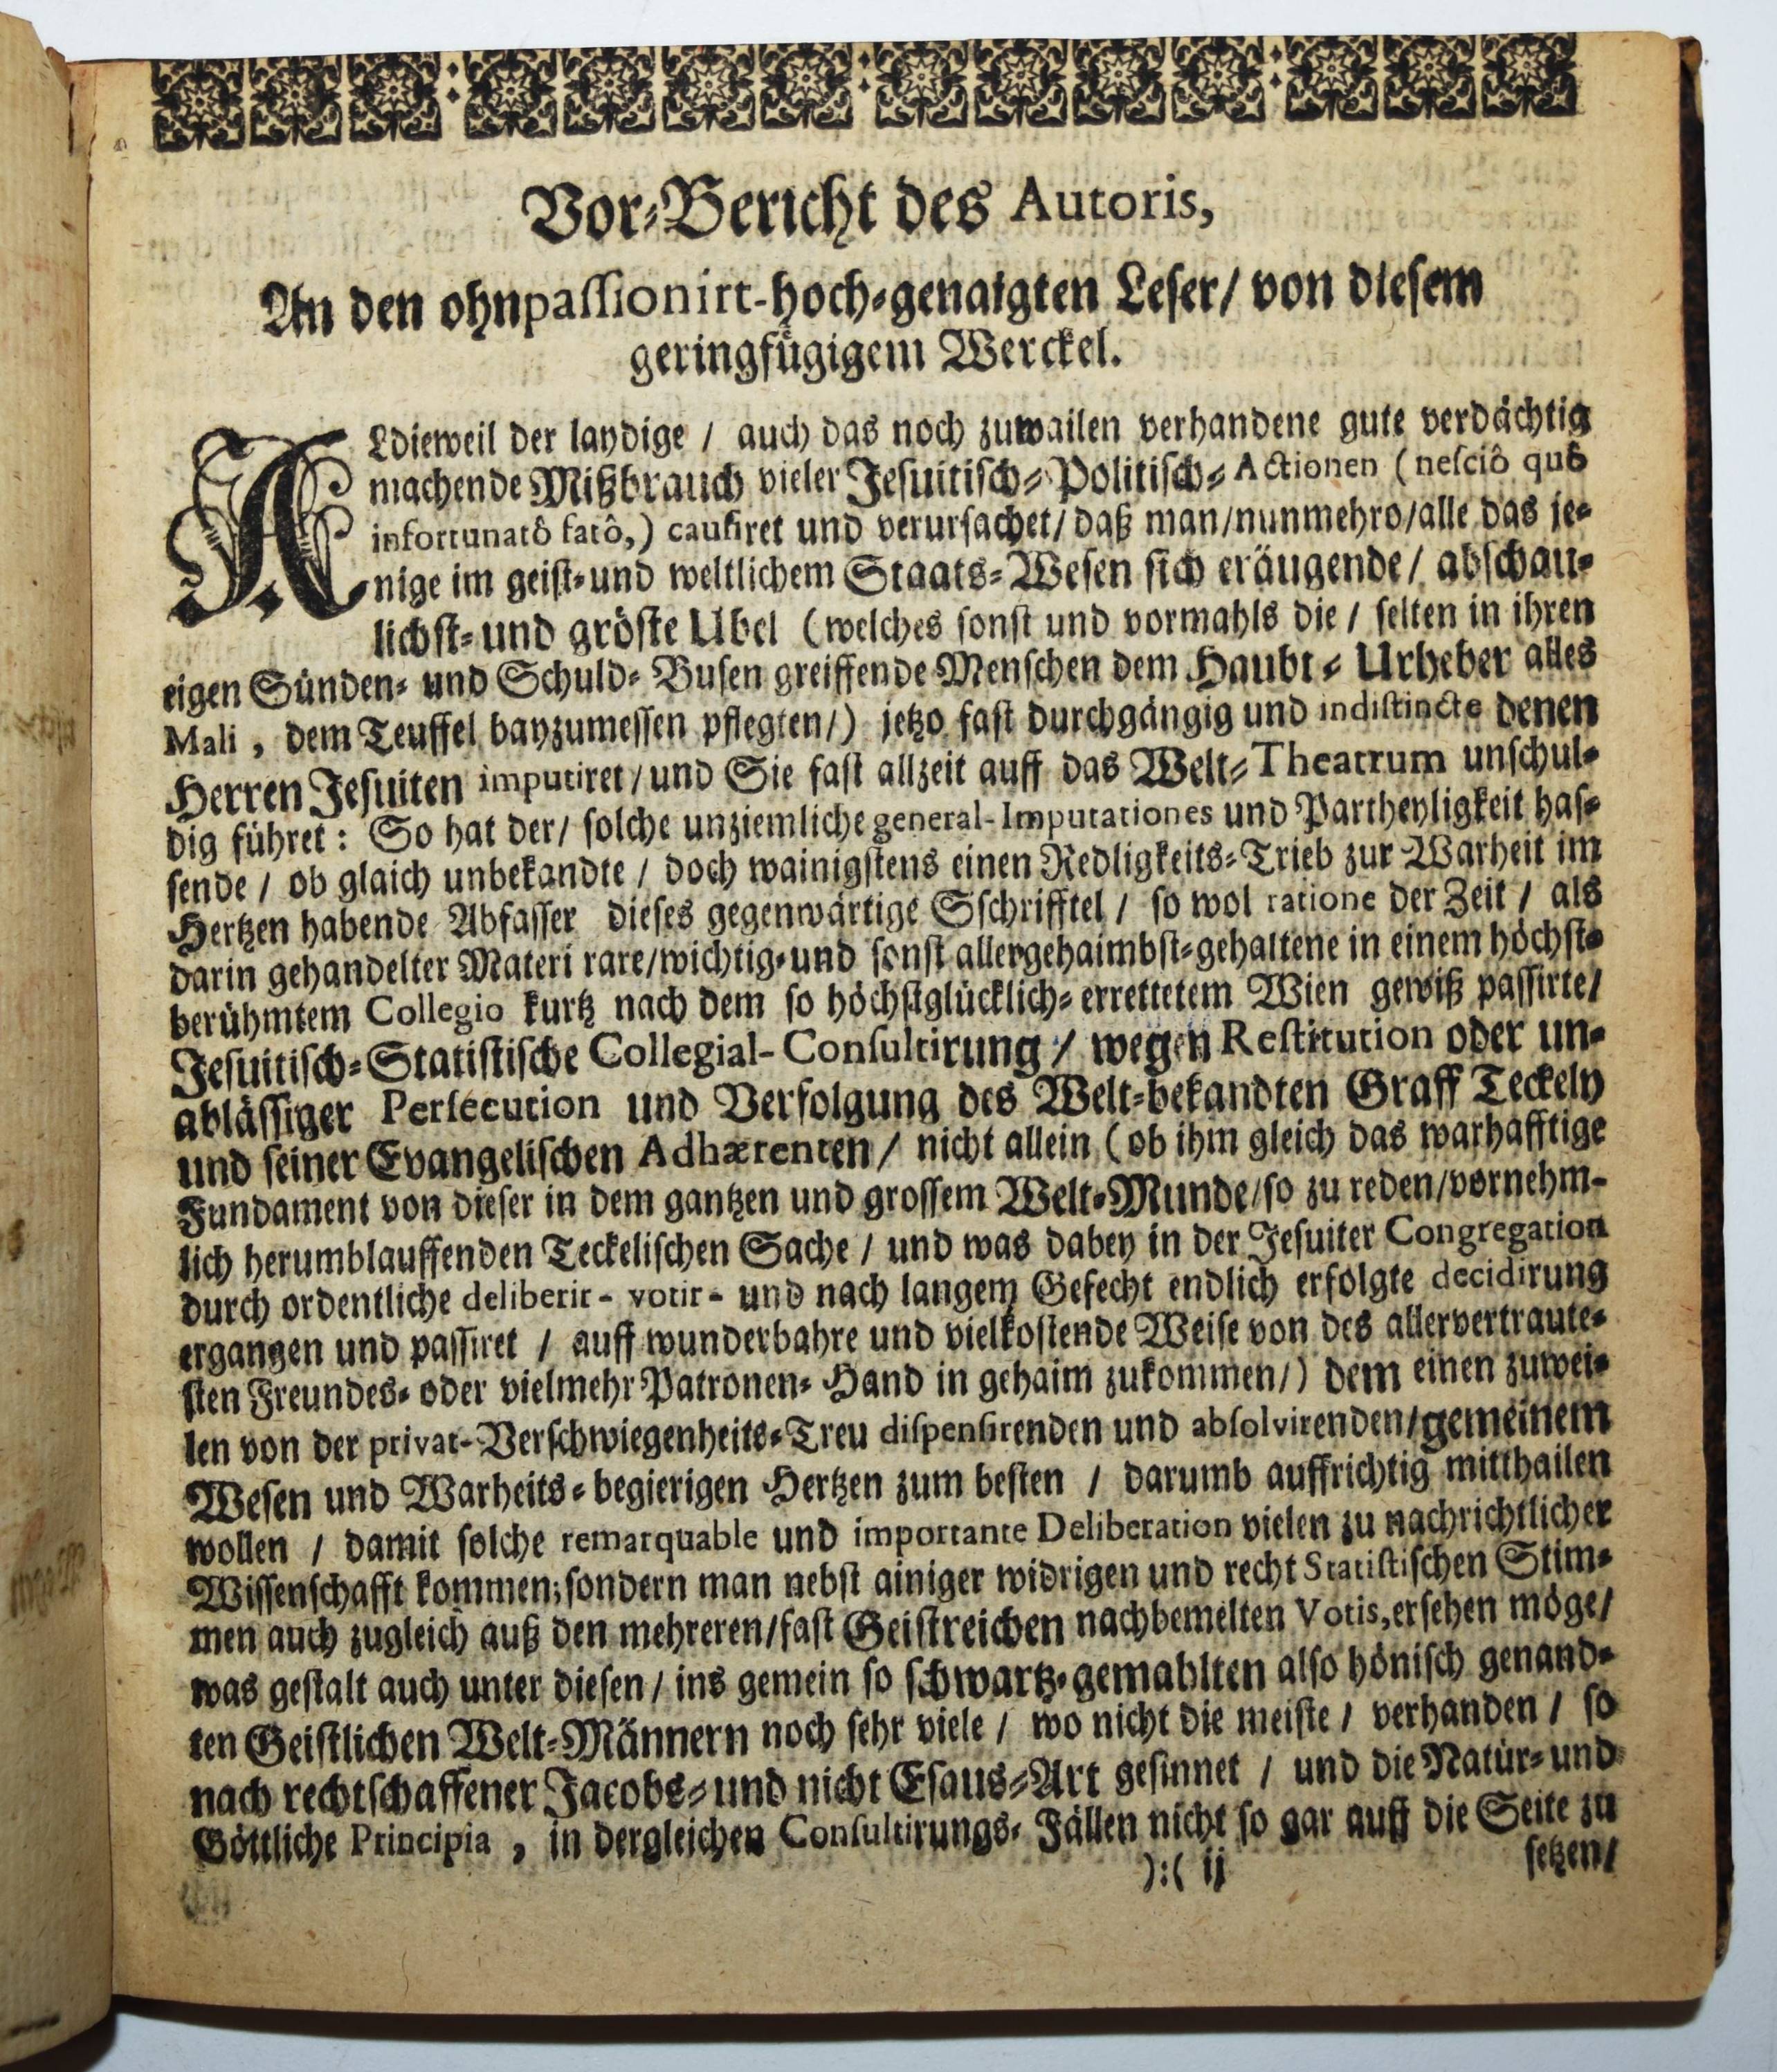 Vor-Bericht des Autoris,
An den ohnpassionirt-hoch-genaigten Leser/ von diesem
geringfügigem Werckel.
ALdieweil der laydige / auch das noch zuwailen verhandene gute verdächtig
machende Mißbrauch vieler Jesuitisch-Politisch-Actionen (nesciô quô
infortunatô fatô,) causiret und verursachet/ daß man/nunmehro/alle das je-
nige im geist-und weltlichem Staats-Wesen sich eräugende/ abschau-
lichst-und gröste Ubel (welches sonst und vormahls die / selten in ihren
eigen Sünden- und Schuld- Busen greiffende Menschen dem Haubt-Urheber alles
Mali , dem Teuffel bayzumessen pflegten/) jetzo fast durchgängig und indistincte denen
Herren Jesuiten imputiret/und Sie fast allzeit auff das Welt-Theatrum unschul-
dig führet: So hat der/ solche unziemliche general-Imputationes und Partheyligkeit has-
sende / ob glaich unbekandte / doch wainigstens einen Redligkeits-Trieb zur Warheit im
Hertzen habende Abfasser dieses gegenwärtige Sschrifftel / so wol ratione der Zeit / als
darin gehandelter Materi rare/wichtig-und sonst allergehaimbst-gehaltene in einem höchst-
berühmtem Collegio kurtz nach dem so höchstglücklich-errettetem Wien gewiß passirte/
Jesuitisch-Statistische Collegial-Consultirung / wegen Restitution oder un-
ablässiger Persecution und Verfolgung des Welt-bekandten Graff Teckely
und seiner Evangelischen Adhærenten/ nicht allein (ob ihm gleich das warhafftige
Fundament von dieser in dem gantzen und grossem Welt-Munde/so zu reden/vornehm-
lich herumblauffenden Teckelischen Sache / und was dabey in der Jesuiter Congregation
durch ordentliche deliberir- votir- und nach langem Gefecht endlich erfolgte decidirung
ergangen und passiret / auff wunderbahre und vielkostende Weise von des allervertraute-
sten Freundes- oder vielmehr Patronen- Hand in gehaim zukommen/) dem einen zuwei-
len von der privat-Verschwiegenheits-Treu dispensirenden und absolvirenden/gemeinem
Wesen und Warheits-begierigen Hertzen zum besten / darumb auffrichtig mitthailen
wollen / damit solche remarquable und importante Deliberation vielen zu nachrichtlicher
Wissenschafft kommen; sondern man nebst ainiger widrigen und recht Statistischen Stim-
men auch zugleich auß den mehreren/fast Geistreichen nachbemelten Votis, ersehen möge/
was gestalt auch unter diesen/ ins gemein so schwartz-gemahlten also hönisch genand-
ten Geistlichen Welt-Männern noch sehr viele / wo nicht die meiste / verhanden / so
nach rechtschaffener Jacobs-und nicht Esaus-Art gesinnet / und die Natür-und
Göttliche Principia , in dergleichen Consultirungs- Fällen nicht so gar auff die Seite zu
):( ij setzen/